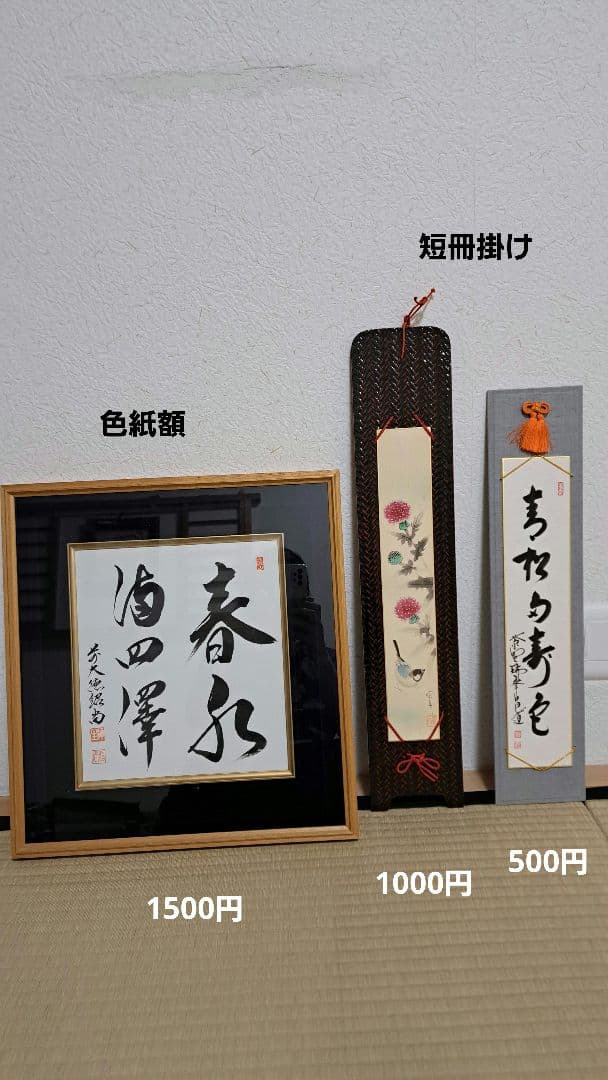 短冊掛け
色紙額
春水
満四澤
青松多寿色
1500円
1000円
500円